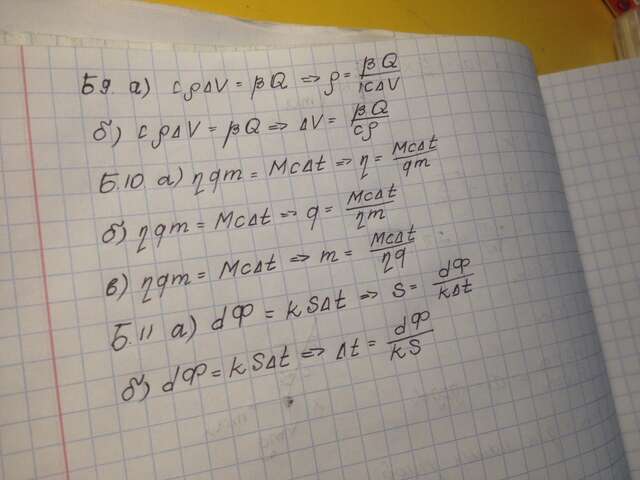 Б.9. а) cρΔV = βQ ⇒ ρ = βQ/cΔV
б) cρΔV = βQ ⇒ ΔV = βQ/cρ
Б.10 а) ηqm = McΔt ⇒ η = McΔt/qm
б) ηqm = McΔt ⇒ q = McΔt/ηm
в) ηqm = McΔt ⇒ m = McΔt/ηq
Б.11 а) dφ = kSΔt ⇒ S = dφ/kΔt
б) dφ = kSΔt ⇒ Δt = dφ/kS